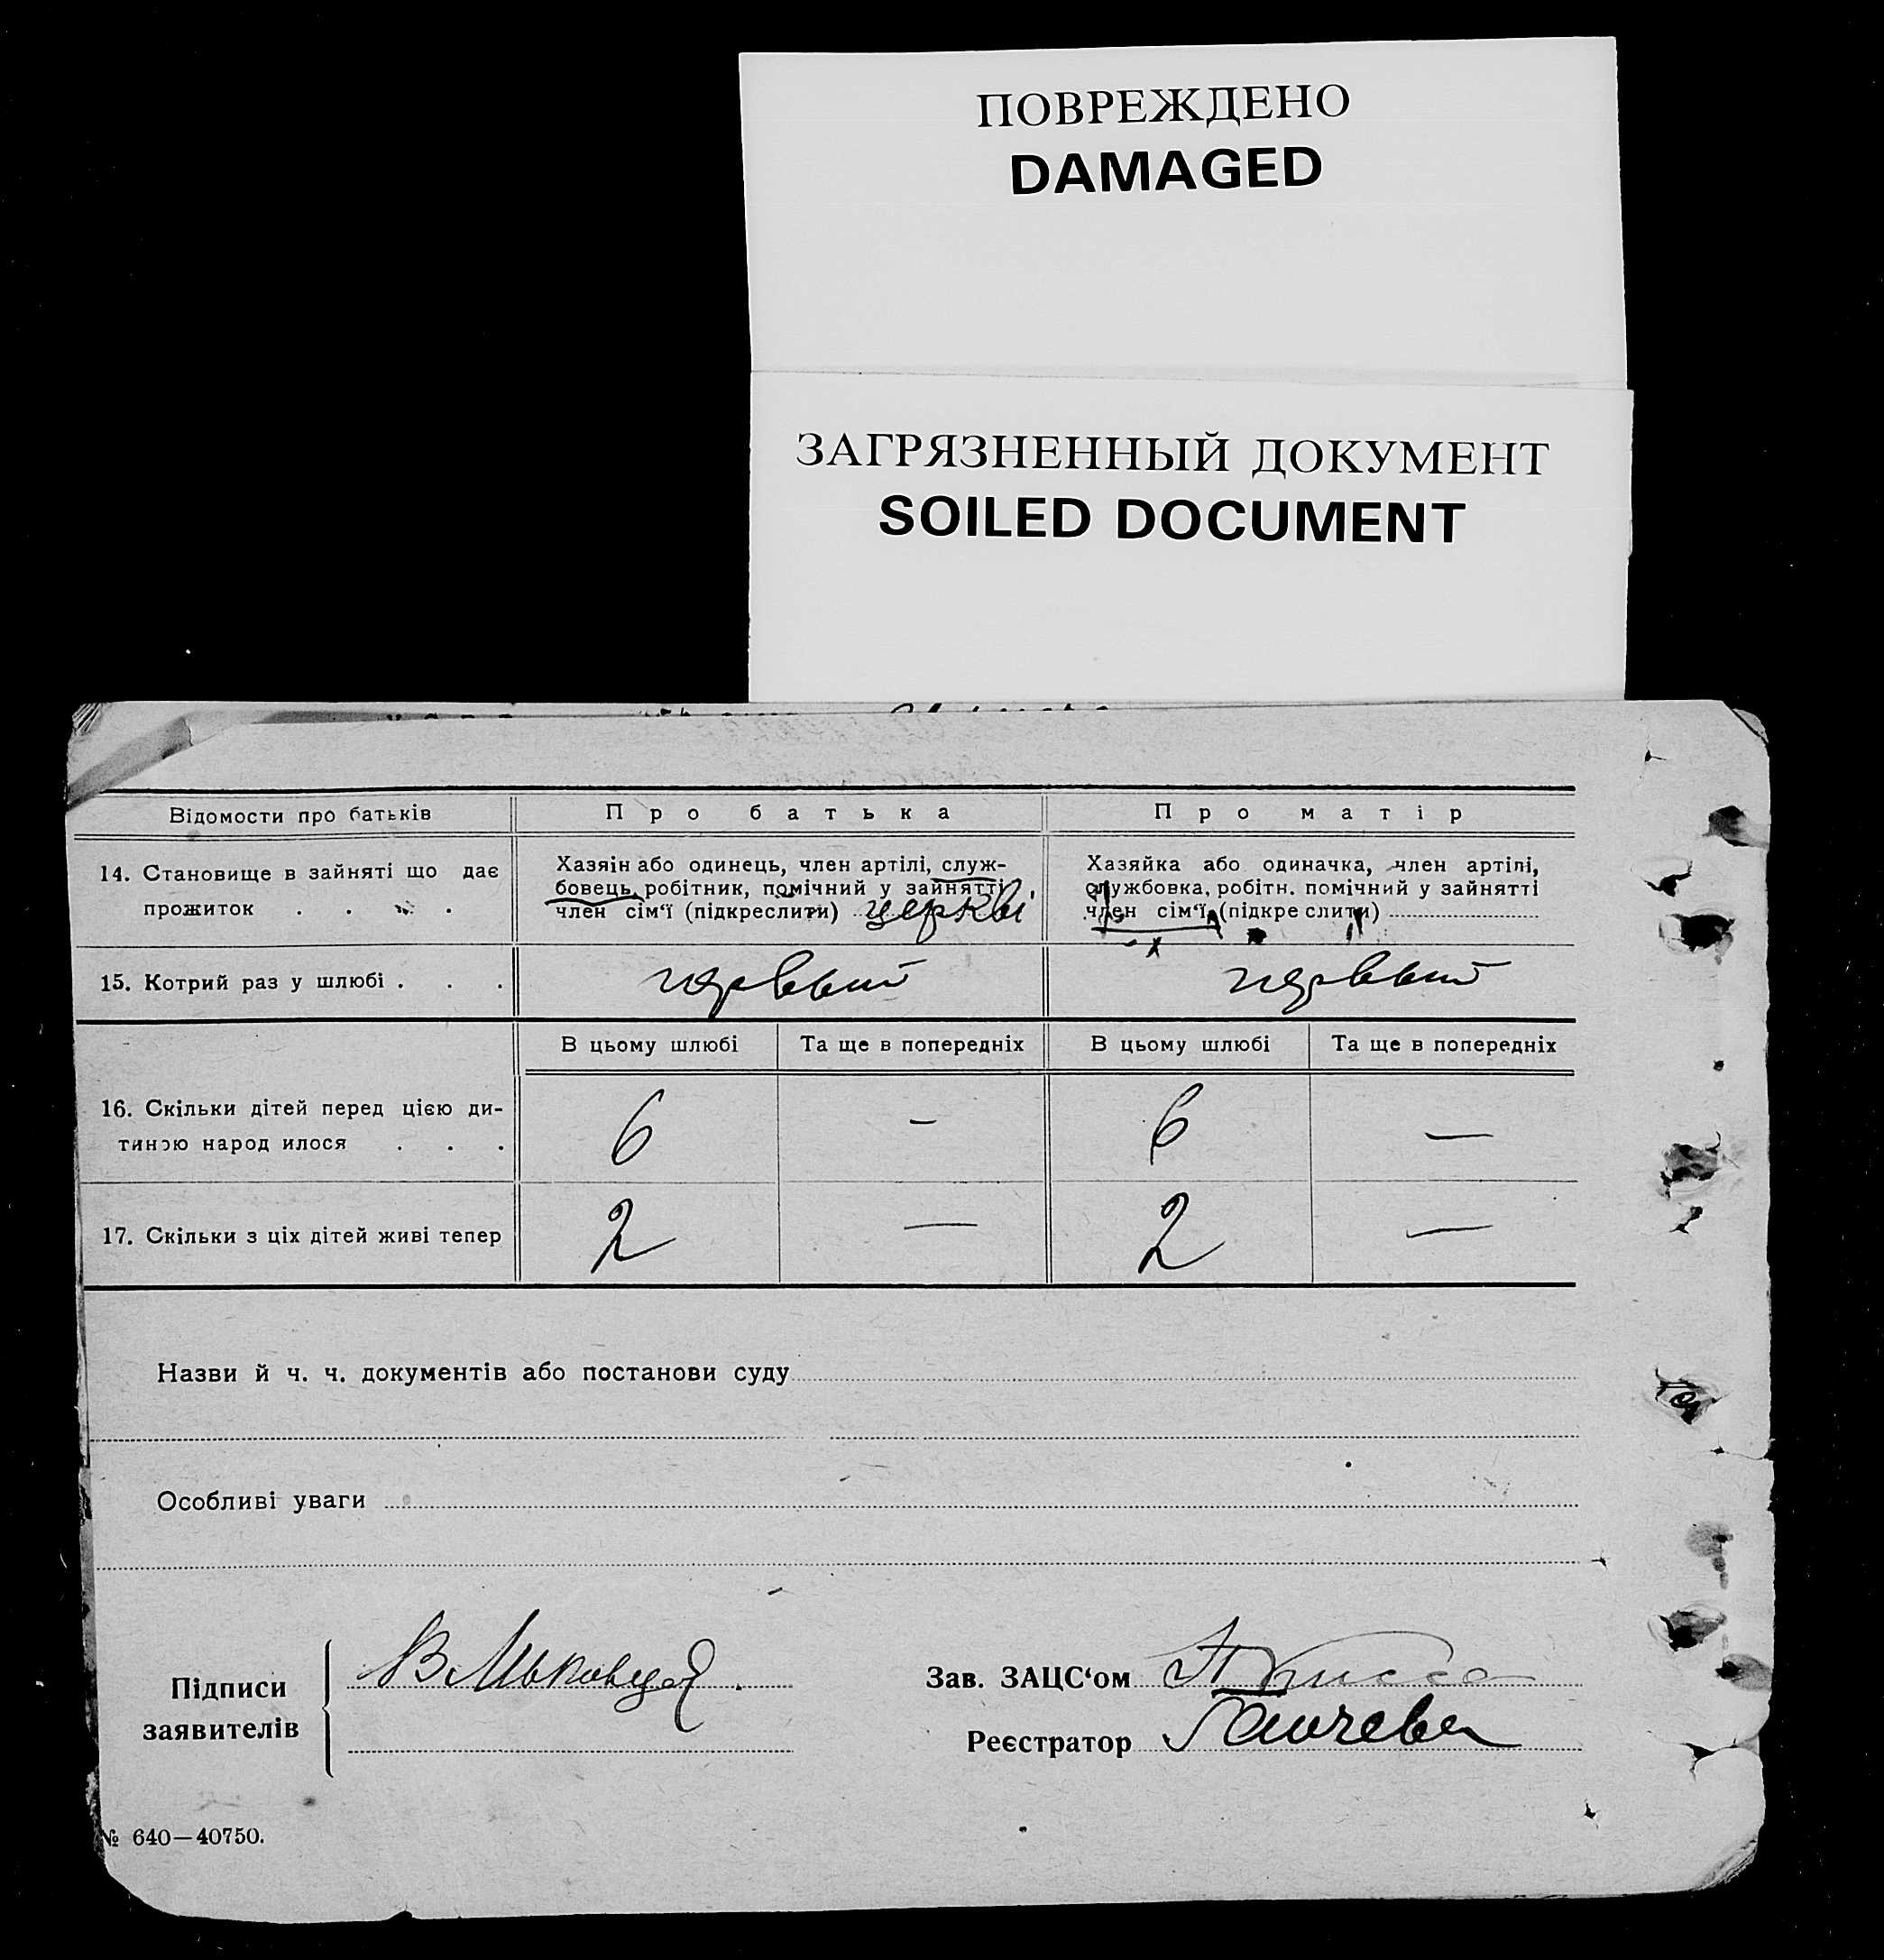 ПОВРЕЖДЕНО
DAMAGED
ЗАГРЯЗНЕННЫЙ ДОКУМЕНТ
SOILED DOCUMENT
Відомости про батьків
Про батька
Про матір
14. Становище в зайняті що дає
прожиток . . . .
Хазяїн або одинець, член артілі, служ-
бовець, робітник, помічний у зайнятті,
член сім'ї (підкреслити) церкві
Хазяйка або одиначка, член артілі,
службовка, робітн. помічний у зайнятті
член сім'ї, (підкреслити)
15. Котрий раз у шлюбі . . .
первый
первый
В цьому шлюбі
Та ще в попередніх
В цьому шлюбі
Та ще в попередніх
16. Скільки дітей перед цією ди-
тиною народилося . . .
6
–
6
—
17. Скільки з ціх дітей живі тепер
2
—
2
—
Назви й ч. ч. документів або постанови суду
Особливі уваги
Підписи
заявителів
Зав. ЗАЦС'ом
Реєстратор
№ 640—40750.